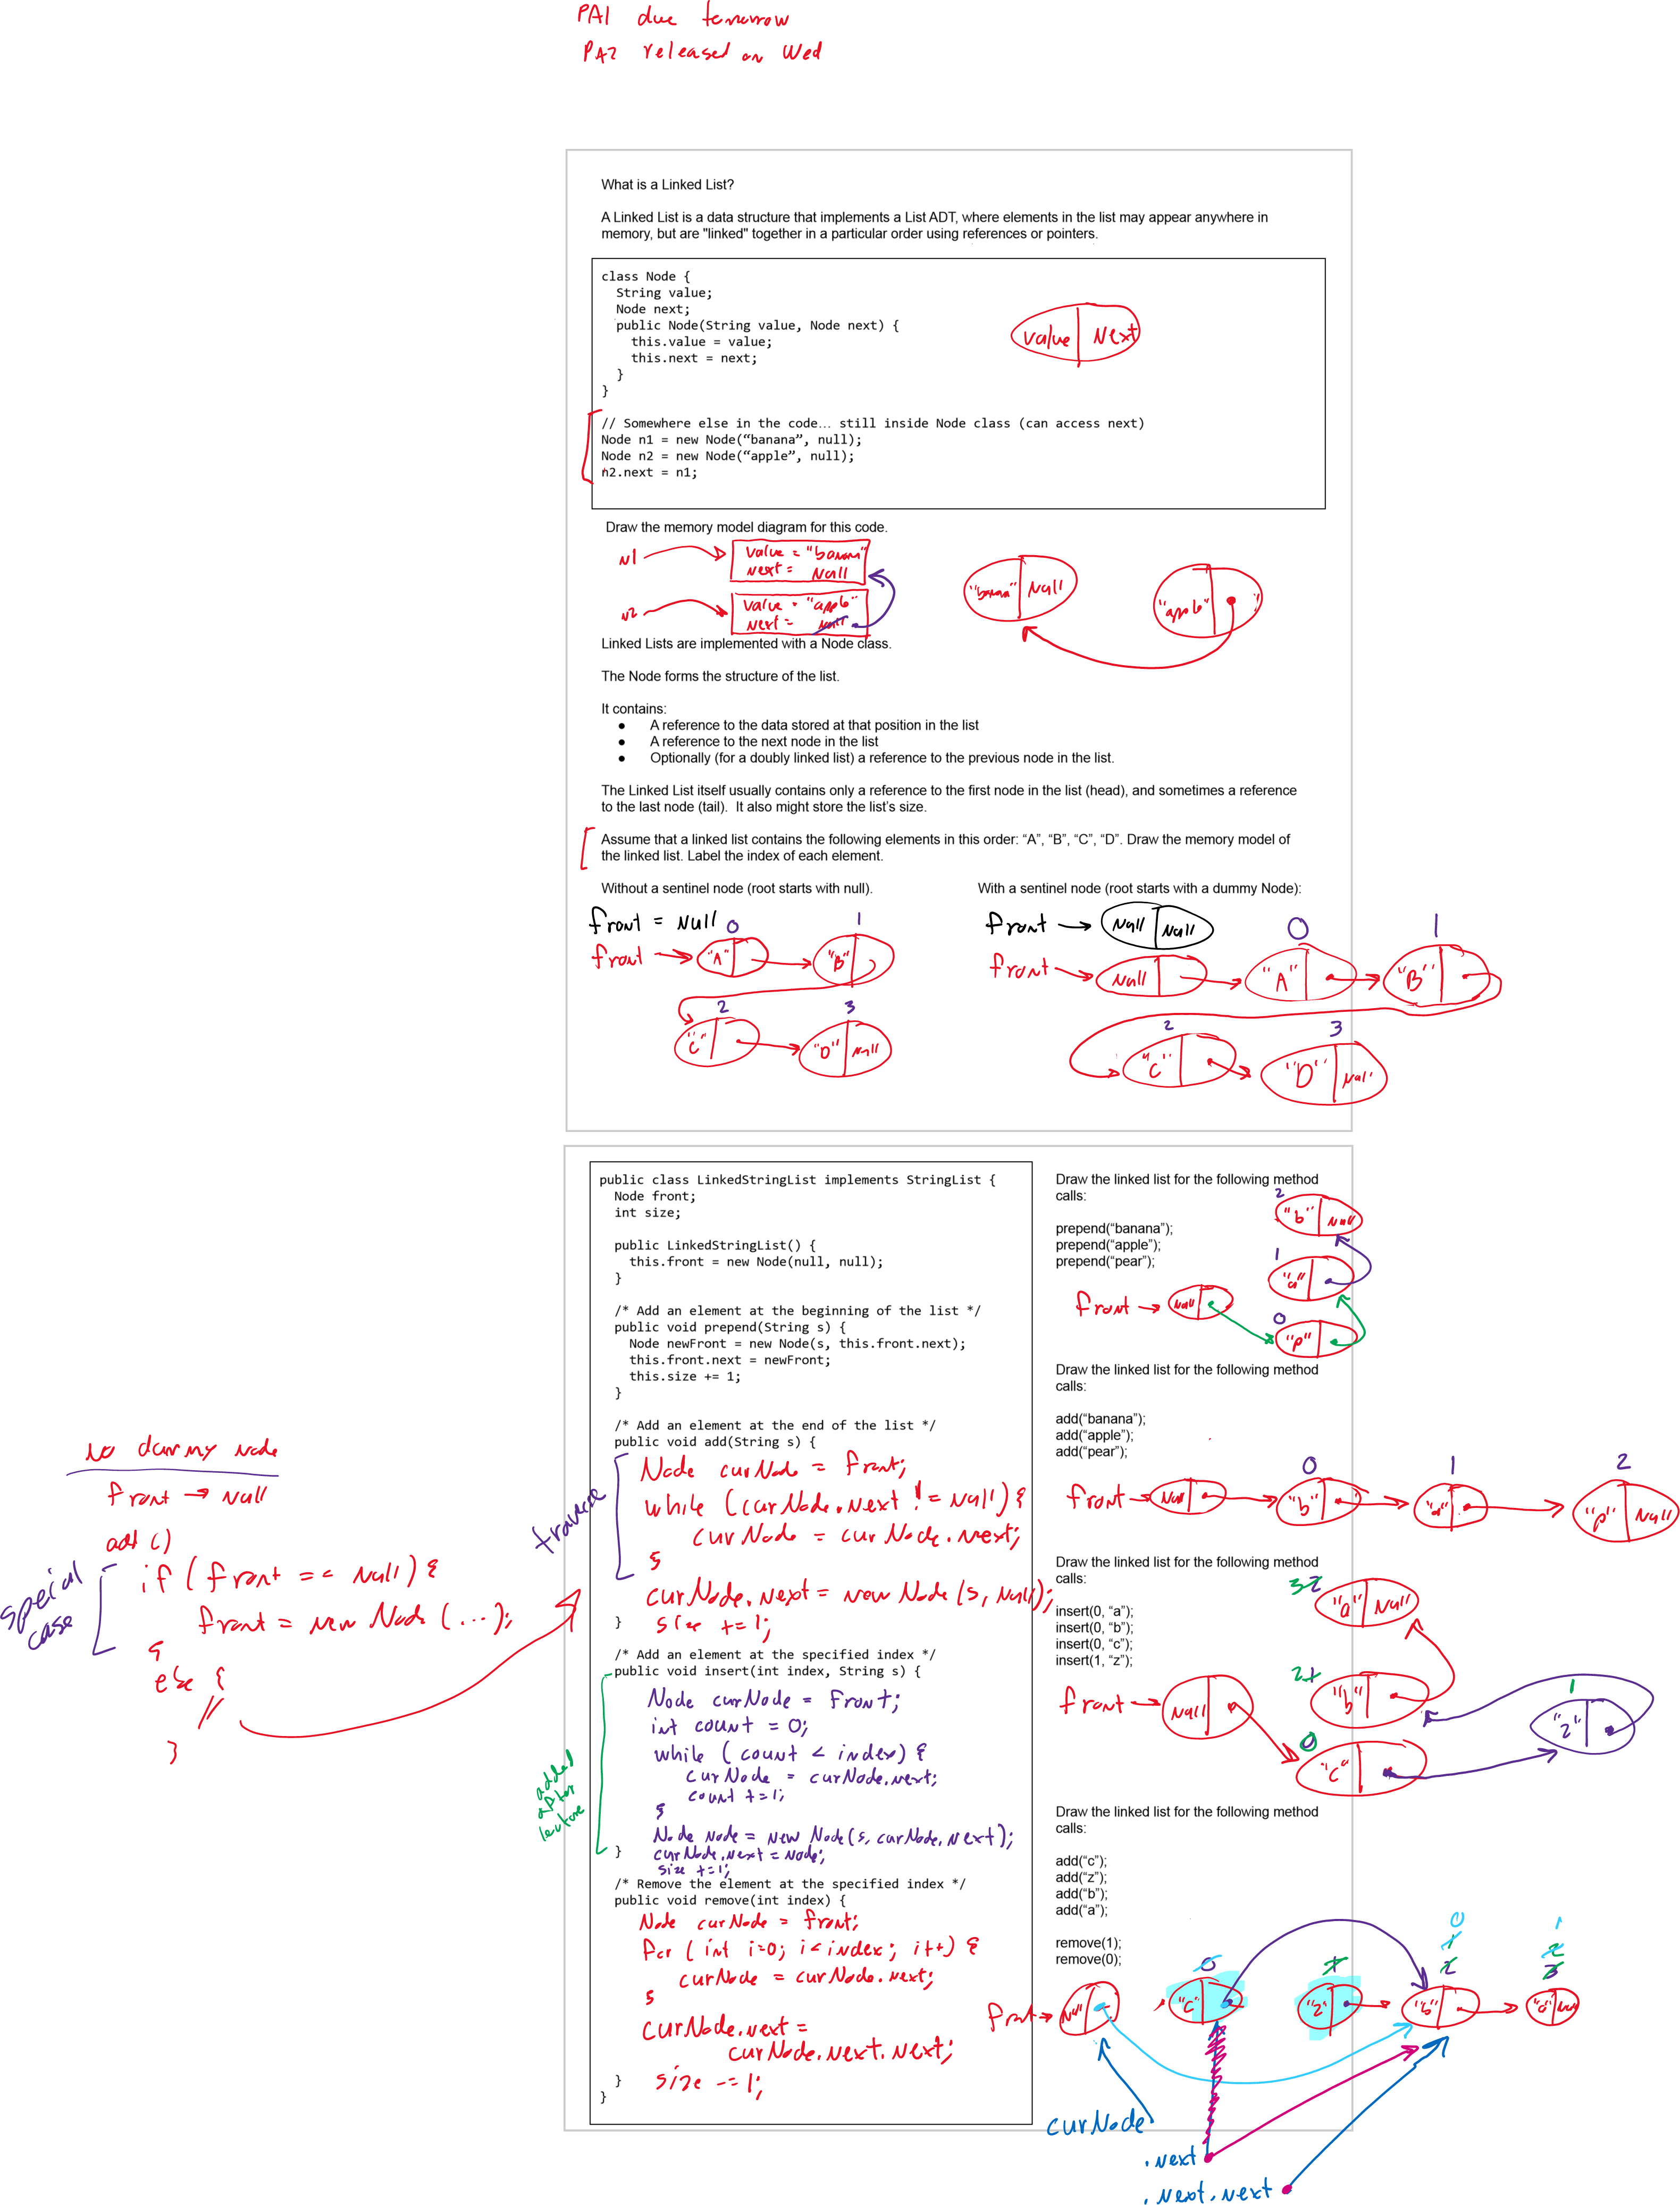 PA1 due tomorrow
PA2 released on Wed
What is a Linked List?
A Linked List is a data structure that implements a List ADT, where elements in the list may appear anywhere in
memory, but are "linked" together in a particular order using references or pointers.
class Node {
String value;
Node next;
public Node(String value, Node next) {
this.value = value;
this.next = next;
}
}
value Next
// Somewhere else in the code... still inside Node class (can access next)
Node n1 = new Node(“banana”, null);
Node n2 = new Node(“apple”, null);
n2.next = n1;
Draw the memory model diagram for this code.
N1
value = "banana"
Next = Null
N2
value = "apple"
Next = Null
"banana" Null
"apple"
Linked Lists are implemented with a Node class.
The Node forms the structure of the list.
It contains:
● A reference to the data stored at that position in the list
● A reference to the next node in the list
● Optionally (for a doubly linked list) a reference to the previous node in the list.
The Linked List itself usually contains only a reference to the first node in the list (head), and sometimes a reference
to the last node (tail). It also might store the list’s size.
Assume that a linked list contains the following elements in this order: “A”, “B”, “C”, “D”. Draw the memory model of
the linked list. Label the index of each element.
Without a sentinel node (root starts with null).
front = Null
0 1
front "A" "B"
2 3
"C" "D" Null
With a sentinel node (root starts with a dummy Node):
front Null Null
0 1
front Null "A" "B"
2 3
"C" "D" Null
public class LinkedStringList implements StringList {
Node front;
int size;
public LinkedStringList() {
this.front = new Node(null, null);
}
/* Add an element at the beginning of the list */
public void prepend(String s) {
Node newFront = new Node(s, this.front.next);
this.front.next = newFront;
this.size += 1;
}
/* Add an element at the end of the list */
public void add(String s) {
traverse
Node curNode = front;
while (curNode.next != null) {
curNode = curNode.next;
}
curNode.next = new Node (s, Null);
} size += 1;
/* Add an element at the specified index */
public void insert(int index, String s) {
added
after
lecture
Node curNode = front;
int count = 0;
while (count < index) {
curNode = curNode.next;
count += 1;
}
Node node = new Node(s, curNode.next);
} curNode.next = node;
size += 1;
/* Remove the element at the specified index */
public void remove(int index) {
Node curNode = front;
for (int i=0; i<index; i++) {
curNode = curNode.next;
}
curNode.next =
curNode.next.next;
} size -= 1;
}
No dummy node
front → Null
add ()
special
case
if (front == Null) {
front = new Node (...);
}
else {
//
}
Draw the linked list for the following method
calls:
prepend(“banana”);
prepend(“apple”);
prepend(“pear”);
2
"b" Null
1
"a"
front Null
0
"p"
Draw the linked list for the following method
calls:
add(“banana”);
add(“apple”);
add(“pear”);
0 1 2
front Null "b" "a" "p" Null
Draw the linked list for the following method
calls:
insert(0, “a”);
insert(0, “b”);
insert(0, “c”);
insert(1, “z”);
3 2
"a" Null
2 1
"b"
1
"z"
front Null
0
"c"
Draw the linked list for the following method
calls:
add(“c”);
add(“z”);
add(“b”);
add(“a”);
remove(1);
remove(0);
0 1
1 2
0 1 2 3
front Null "c" "z" "b" "a" Null
curNode
.next
.next.next